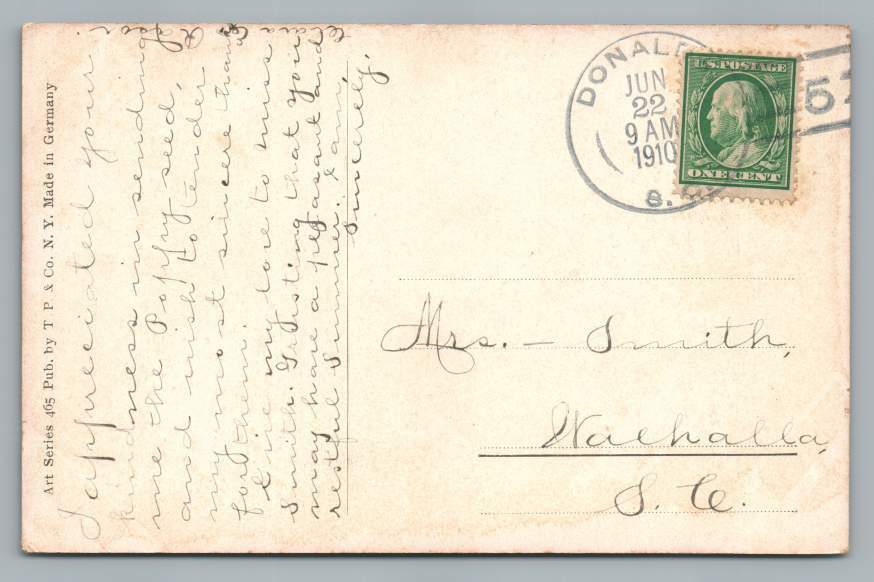 Art Series 465 Pub. by T P & Co. N. Y. Made in Germany
I appreciated your
kindness in sending
me the Poppy seed,
and wish to tender
my most sincere thanks
for them.
Give my love to miss
Smith. Trusting that you
may have a pleasant and
restful Summer. I am,
Sincerely,
DONALD
JUN
22
9 AM
1910
S.
U.S. POSTAGE
ONE CENT
5
Mrs. – Smith,
Walhalla,
S. C.